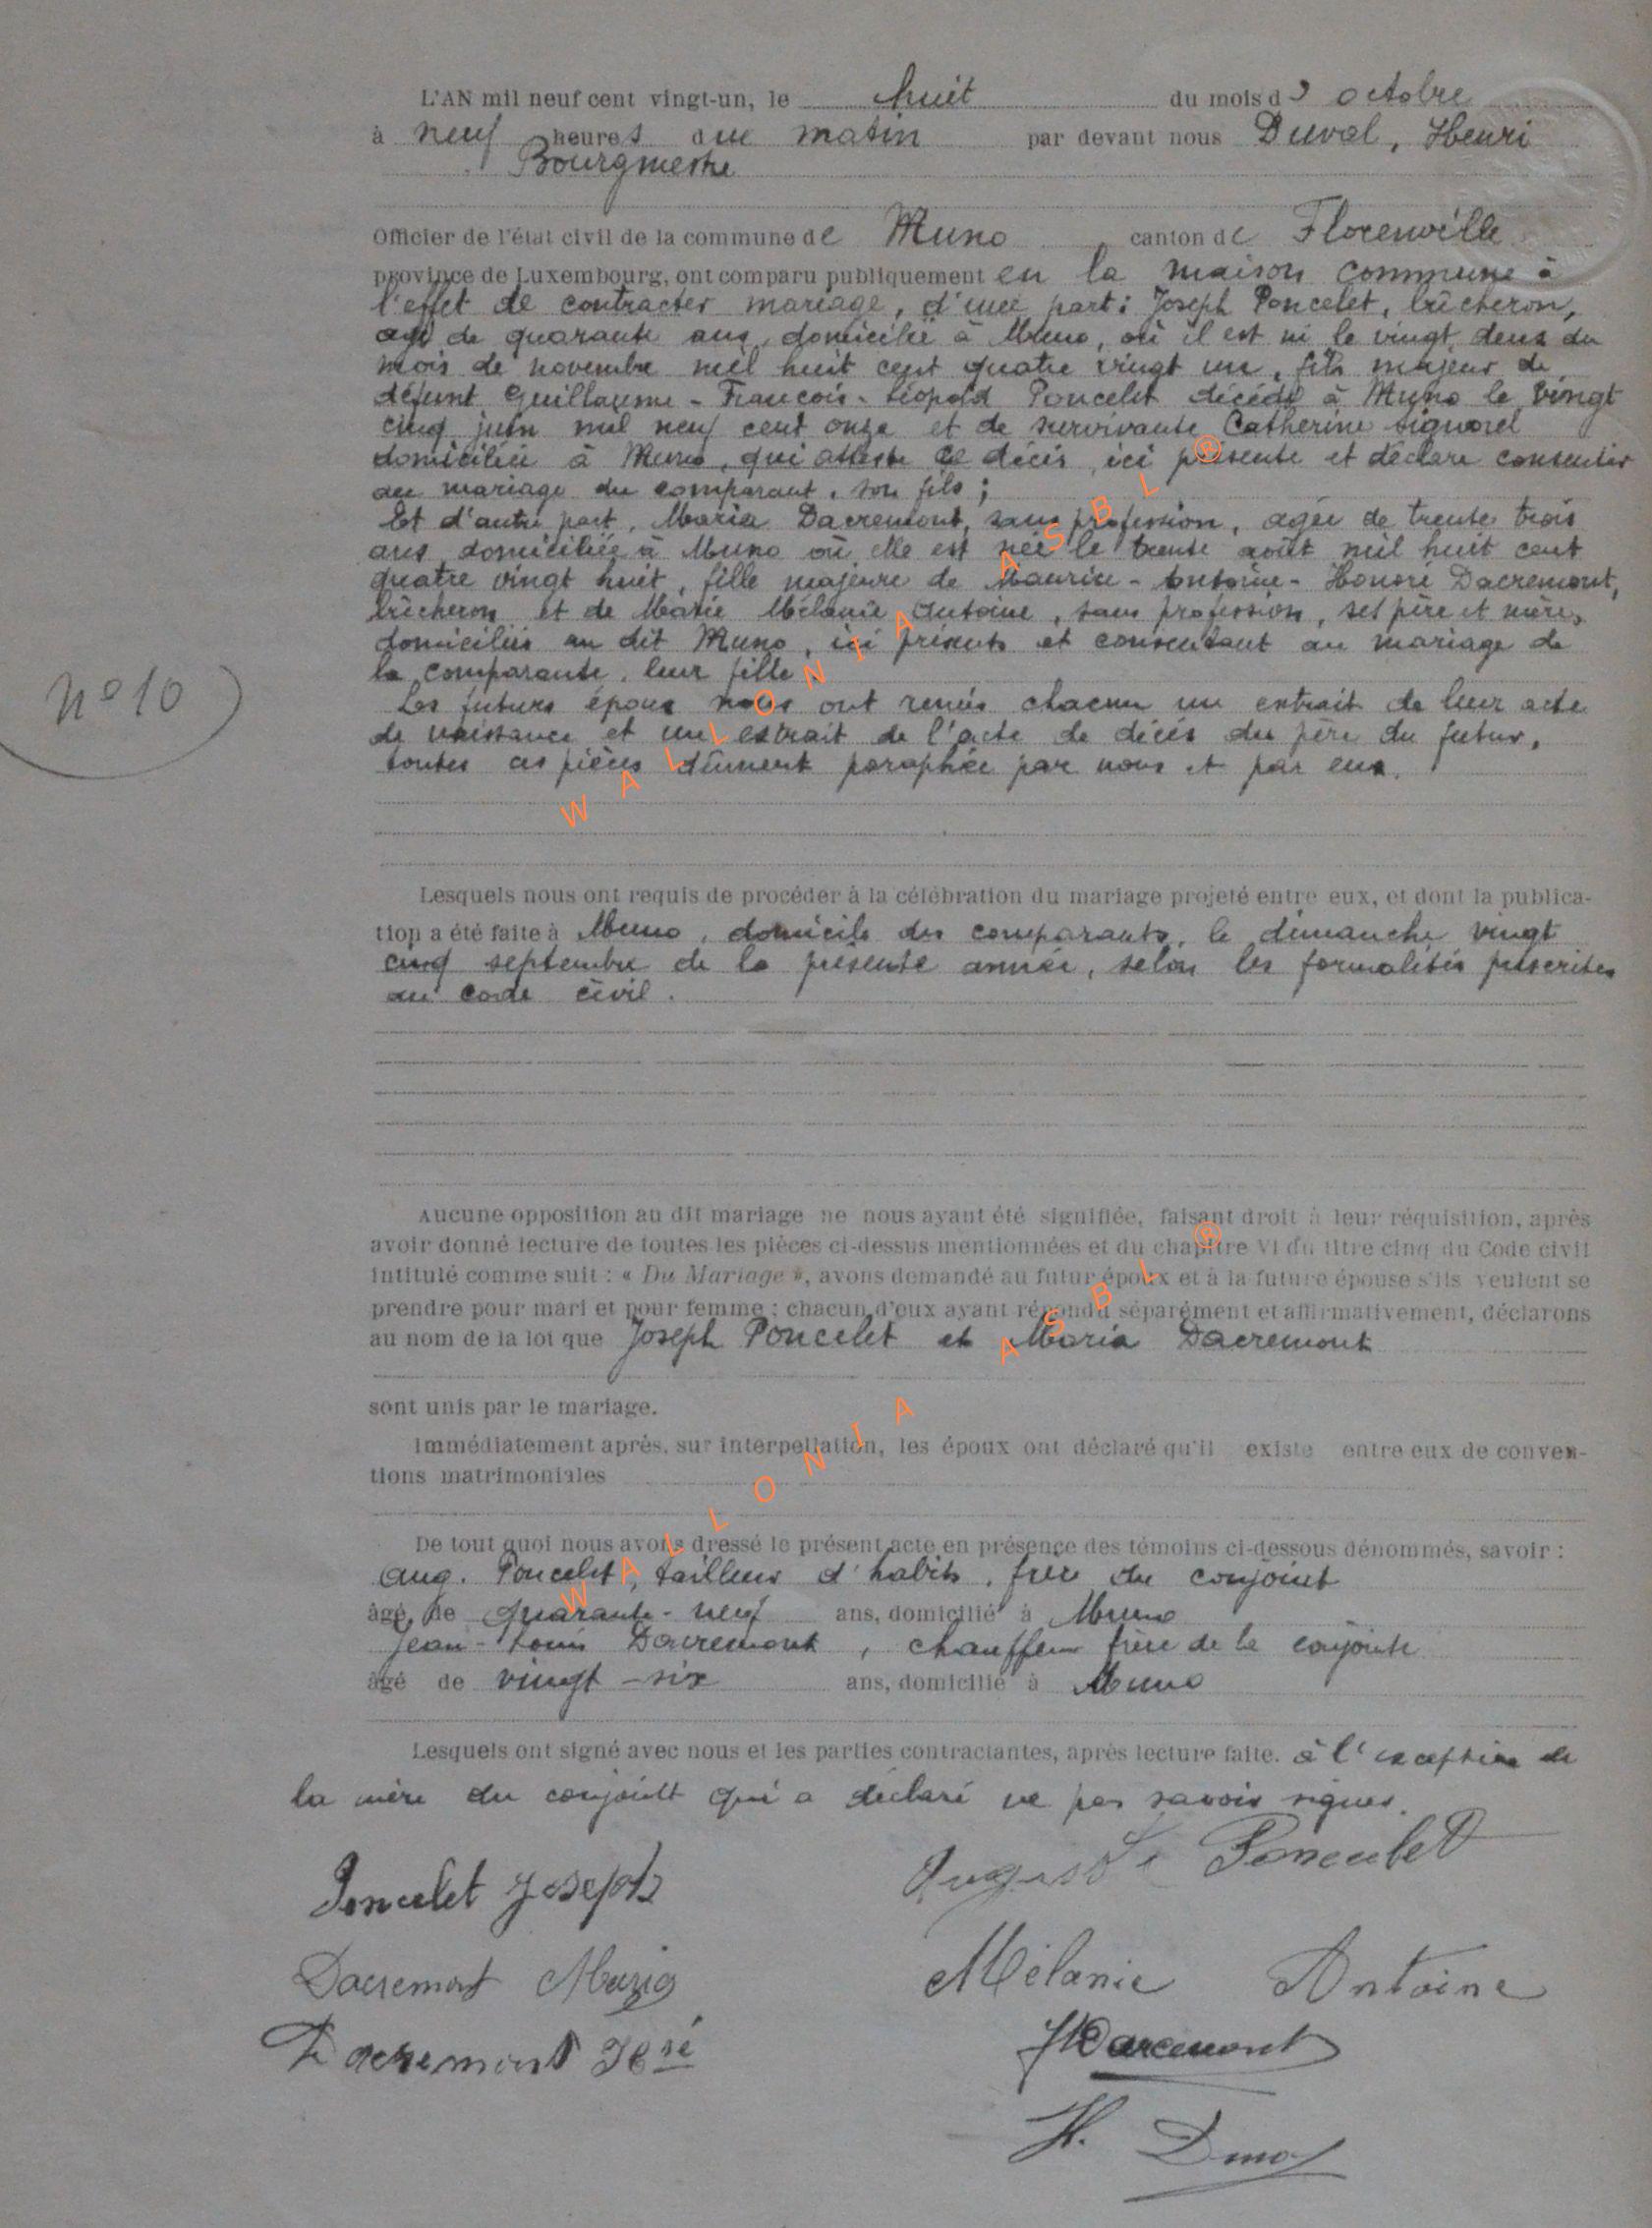 L'AN mil neuf cent vingt-un, le huit du mois d'octobre
à neuf heures due matin par devant nous Duval, Henri
Bourgmestre
Officier de l'état civil de la commune de Muno canton de Florenville
province de Luxembourg, ont comparu publiquement en la maison commune à
l'effet de contracter mariage, d'une part : Joseph Poncelet, bûcheron,
agé de quarante ans, domicilié à Muno, où il est né le vingt deux du
mois de novembre mil huit cent quatre vingt un, fils majeur de
défunt Guillaume - François - Léopold Poncelet décédé à Muno le vingt
cinq juin mil neuf cent onze et de survivante Catherine
domiciliée à Muno, qui atteste ce décès, ici présente et déclare consentir
au mariage du comparant, son fils ;
Et d'autre part, Maria Dacremont, sans profession, agée de trente trois
ans domiciliée à Muno où elle est née le trente août mil huit cent
quatre vingt huit, fille majeure de Maurice - Antoine - Honoré Dacremont,
bûcheron et de Marie Mélanie Antoine, sans profession, ses père et mère,
domiciliés au dit Muno, ici présents et consentant au mariage de
la comparante, leur fille.
Les futurs époux nous ont remis chacun un extrait de leur acte
de naissance et un extrait de l'acte de décès du père du futur,
toutes ces pièces dûment paraphée par nous et par eux.
nº 10
Lesquels nous ont requis de procéder à la célébration du mariage projeté entre eux, et dont la publica-
tion a été faite à Muno, domicile des comparants, le dimanche vingt
cinq septembre de la présente année, selon les formalités prescrites
au code civil.
Aucune opposition au dit mariage ne nous ayant été signifiée, faisant droit à leur réquisition, après
avoir donné lecture de toutes les pièces ci-dessus mentionnées et du chapitre VI du titre cinq du Code civil
intitulé comme suit : « Du Mariage », avons demandé au futur époux et à la future épouse s'ils veulent se
prendre pour mari et pour femme ; chacun d'eux ayant répondu séparément et affirmativement, déclarons
au nom de la loi que Joseph Poncelet et Maria Dacremont
sont unis par le mariage.
Immédiatement après, sur interpellation, les époux ont déclaré qu'il existe entre eux de conven-
tions matrimoniales
De tout quoi nous avons dressé le présent acte en présence des témoins ci-dessous dénommés, savoir :
Aug. Poncelet, tailleur d'habits, frère du conjoint
âgé de quarante-neuf ans, domicilié à Muno
Jean-Louis Dacremont, chauffeur frère de la conjointe
âgé de vingt-six ans, domicilié à Muno
Lesquels ont signé avec nous et les parties contractantes, après lecture faite. à l'exception de
la mère du conjoint qui a déclaré ne pas savoir signer.
Poncelet Joseph Auguste Poncelet
Dacremont Maria Mélanie Antoine
Dacremont Hré Dacremont
H. Duval
WALLONIA ASBL ®
WALLONIA ASBL ®